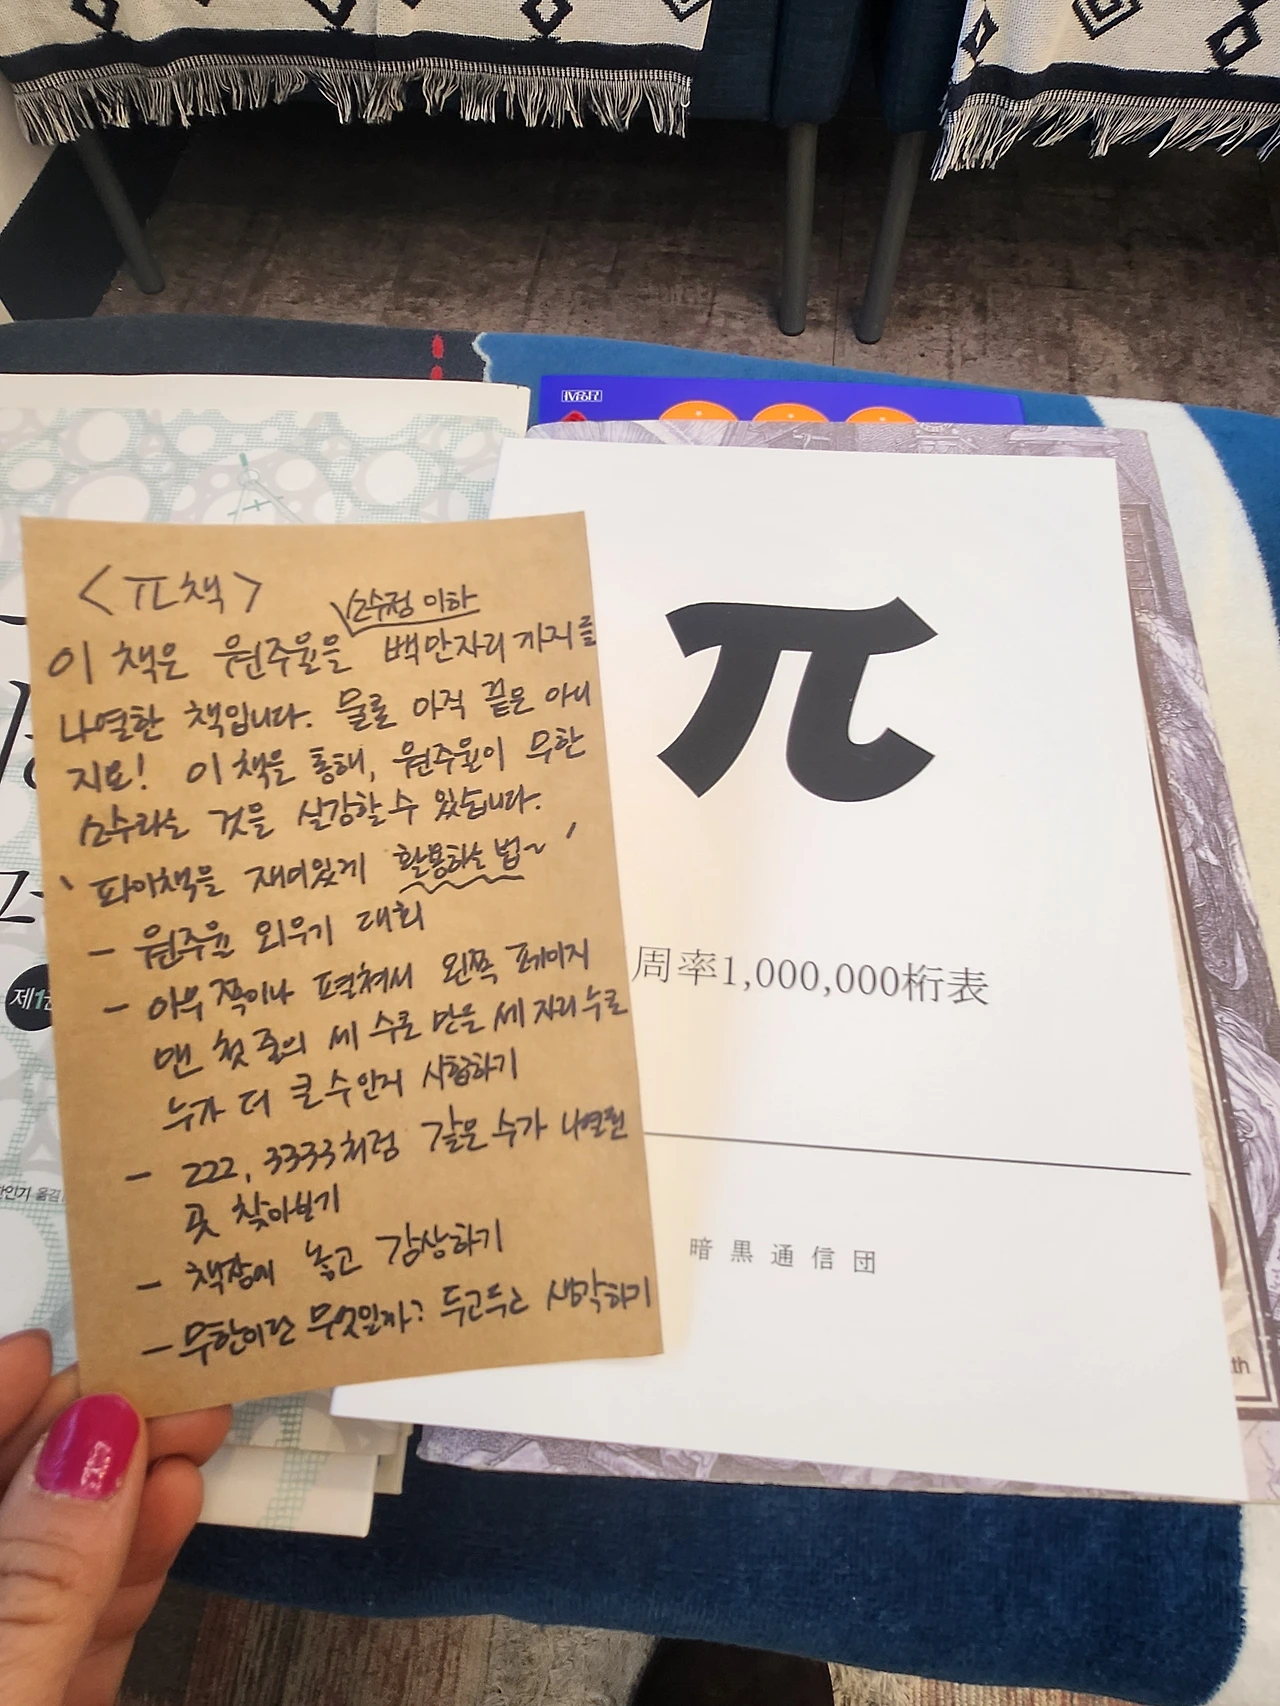 <π책>
소수점 이하
이 책은 원주율을 백만자리까지를
나열한 책입니다. 물론 아직 끝은 아니
지요! 이 책을 통해, 원주율이 무한
소수라는 것을 실감할 수 있습니다.
'파이책을 재미있게 활용하는 법~'
- 원주율 외우기 대회
- 아무 쪽이나 펼쳐서 왼쪽 페이지
맨 첫 줄의 세 수로 만든 세 자리 수로
누가 더 큰 수인지 시합하기
- 222, 3333처럼 같은 수가 나열된
곳 찾아보기
- 책장에 놓고 감상하기
- 무한이란 무엇일까? 두고두고 생각하기
π
周率1,000,000桁表
暗黒通信団
제1권
한인기 옮김
th